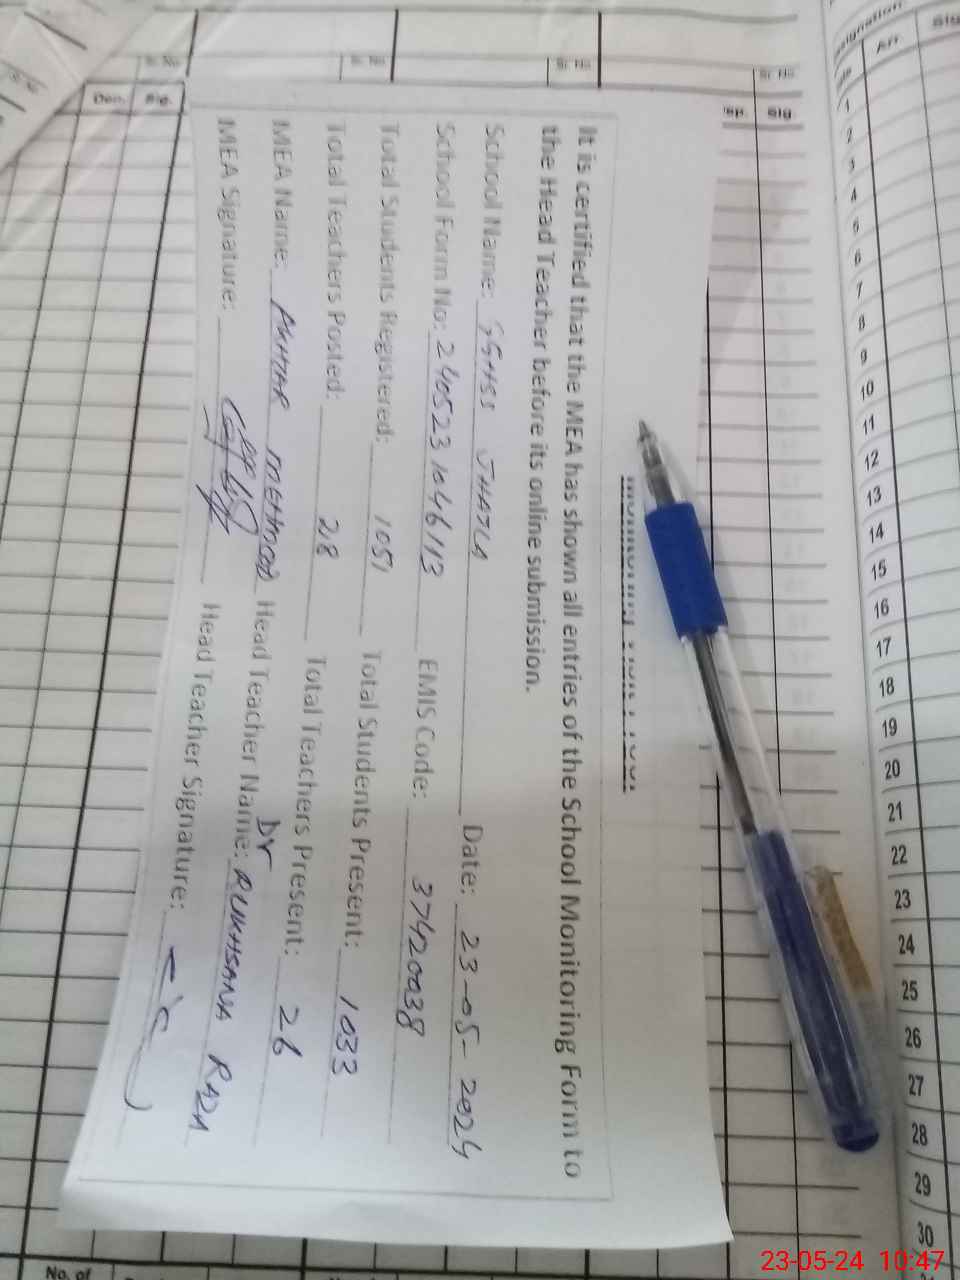 It is certified that the MEA has shown all entries of the School Monitoring Form to
the Head Teacher before its online submission.
School Name: GGHSS JHATLA Date: 23-05-2024
School Form No: 240523 1046113 EMIS Code: 37420038
Total Students Registered: 1051 Total Students Present: 1033
Total Teachers Posted: 28 Total Teachers Present: 26
MEA Name: AKHTAR MEHMOOD Head Teacher Name: Dr RUKHSANA RAZA
MEA Signature: Head Teacher Signature:
Den. Sig.
Sr. No.
Sr. No.
Sig.
Arr.
1
2
3
4
5
6
7
8
9
10
11
12
13
14
15
16
17
18
19
20
21
22
23
24
25
26
27
28
29
30
No. of
23-05-24 10:47